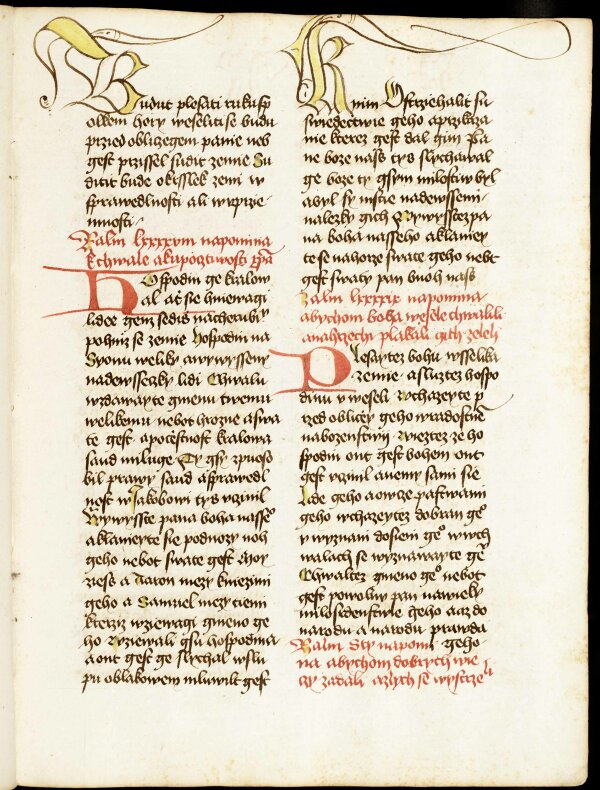 Budut plesati ruku sp
olkem hory weseliti se budu
przied obliczegem panie neb
gest przissel sudit zemie Su
ditit bude okrslek zemi w
sprawedlnosti a lidi w przie
mnosti
Zalm lxxxxviii napomina
k chwale a ku poczt
Hospodin ge kralow
al at sie hniewagi
lidee genz sedis na cherubyn
pohniz se zemie Hospodin na
Syonu weliky a wywysseny
nade wsseczky lidi Chwalu
wzdaway te gmenu twemu
welikemu nebot hrozne a swa
te gest a poczestnost kralowa
saud miluge Ty gsy zpuoso
bil prawy saud a sprawedl
nost w Jakobowi tys vczinil
Wywysste pana boha nasseo
a klanieyte sie podnozy noh
geho nebot swate gest Moy
ziess a Aaron mezy kniezimi
geho a Samuel mezy tiemi
kterziz wziewagi gmeno ge
ho Wziewali gsu hospodina
a ont gest ge slychal w slu
pu oblakowem mluwilt gest
K nim Ostrziehalit su
swiedectwie geho a przikaza
nie kterez gest dal gim Pa
ne boze nass tys slychawal
ge boze ty gsym milostiw byl
a byl sy mstie nade wssemi
nalezky gich Wywyssczez pa
na boha nasseho a klaniey
te se na horze swate geho nebt
gest swaty pan buoh nass
Zalm lxxxxix napomina
abychom boha wesele chwalili
a na hrzechi plakali gich zeleli
Plesaytez bohu wsselika
zemie a sluztez hospo
dinu v weseli Wchazeyte p
rzed obliczey geho w radostne
nabozenstwij Wieztez ze ho
spodin ont gest bohem ont
gest vczinil ny a ne my sami sie
Lide geho a owcze pastwami
geho wchazeytez do bran geo
v wyznani do sieni geo w w ch
walach se wyznaway te ge
Chwaltez gmeno geo nebot
gest powolny pan na wieky
milosrdenstwie geho a az do
narodu a narodu prawda
geho
Zalm Sty napomi
na abychom dobrych wie
czy zadali a zlych se wystrzeh
li